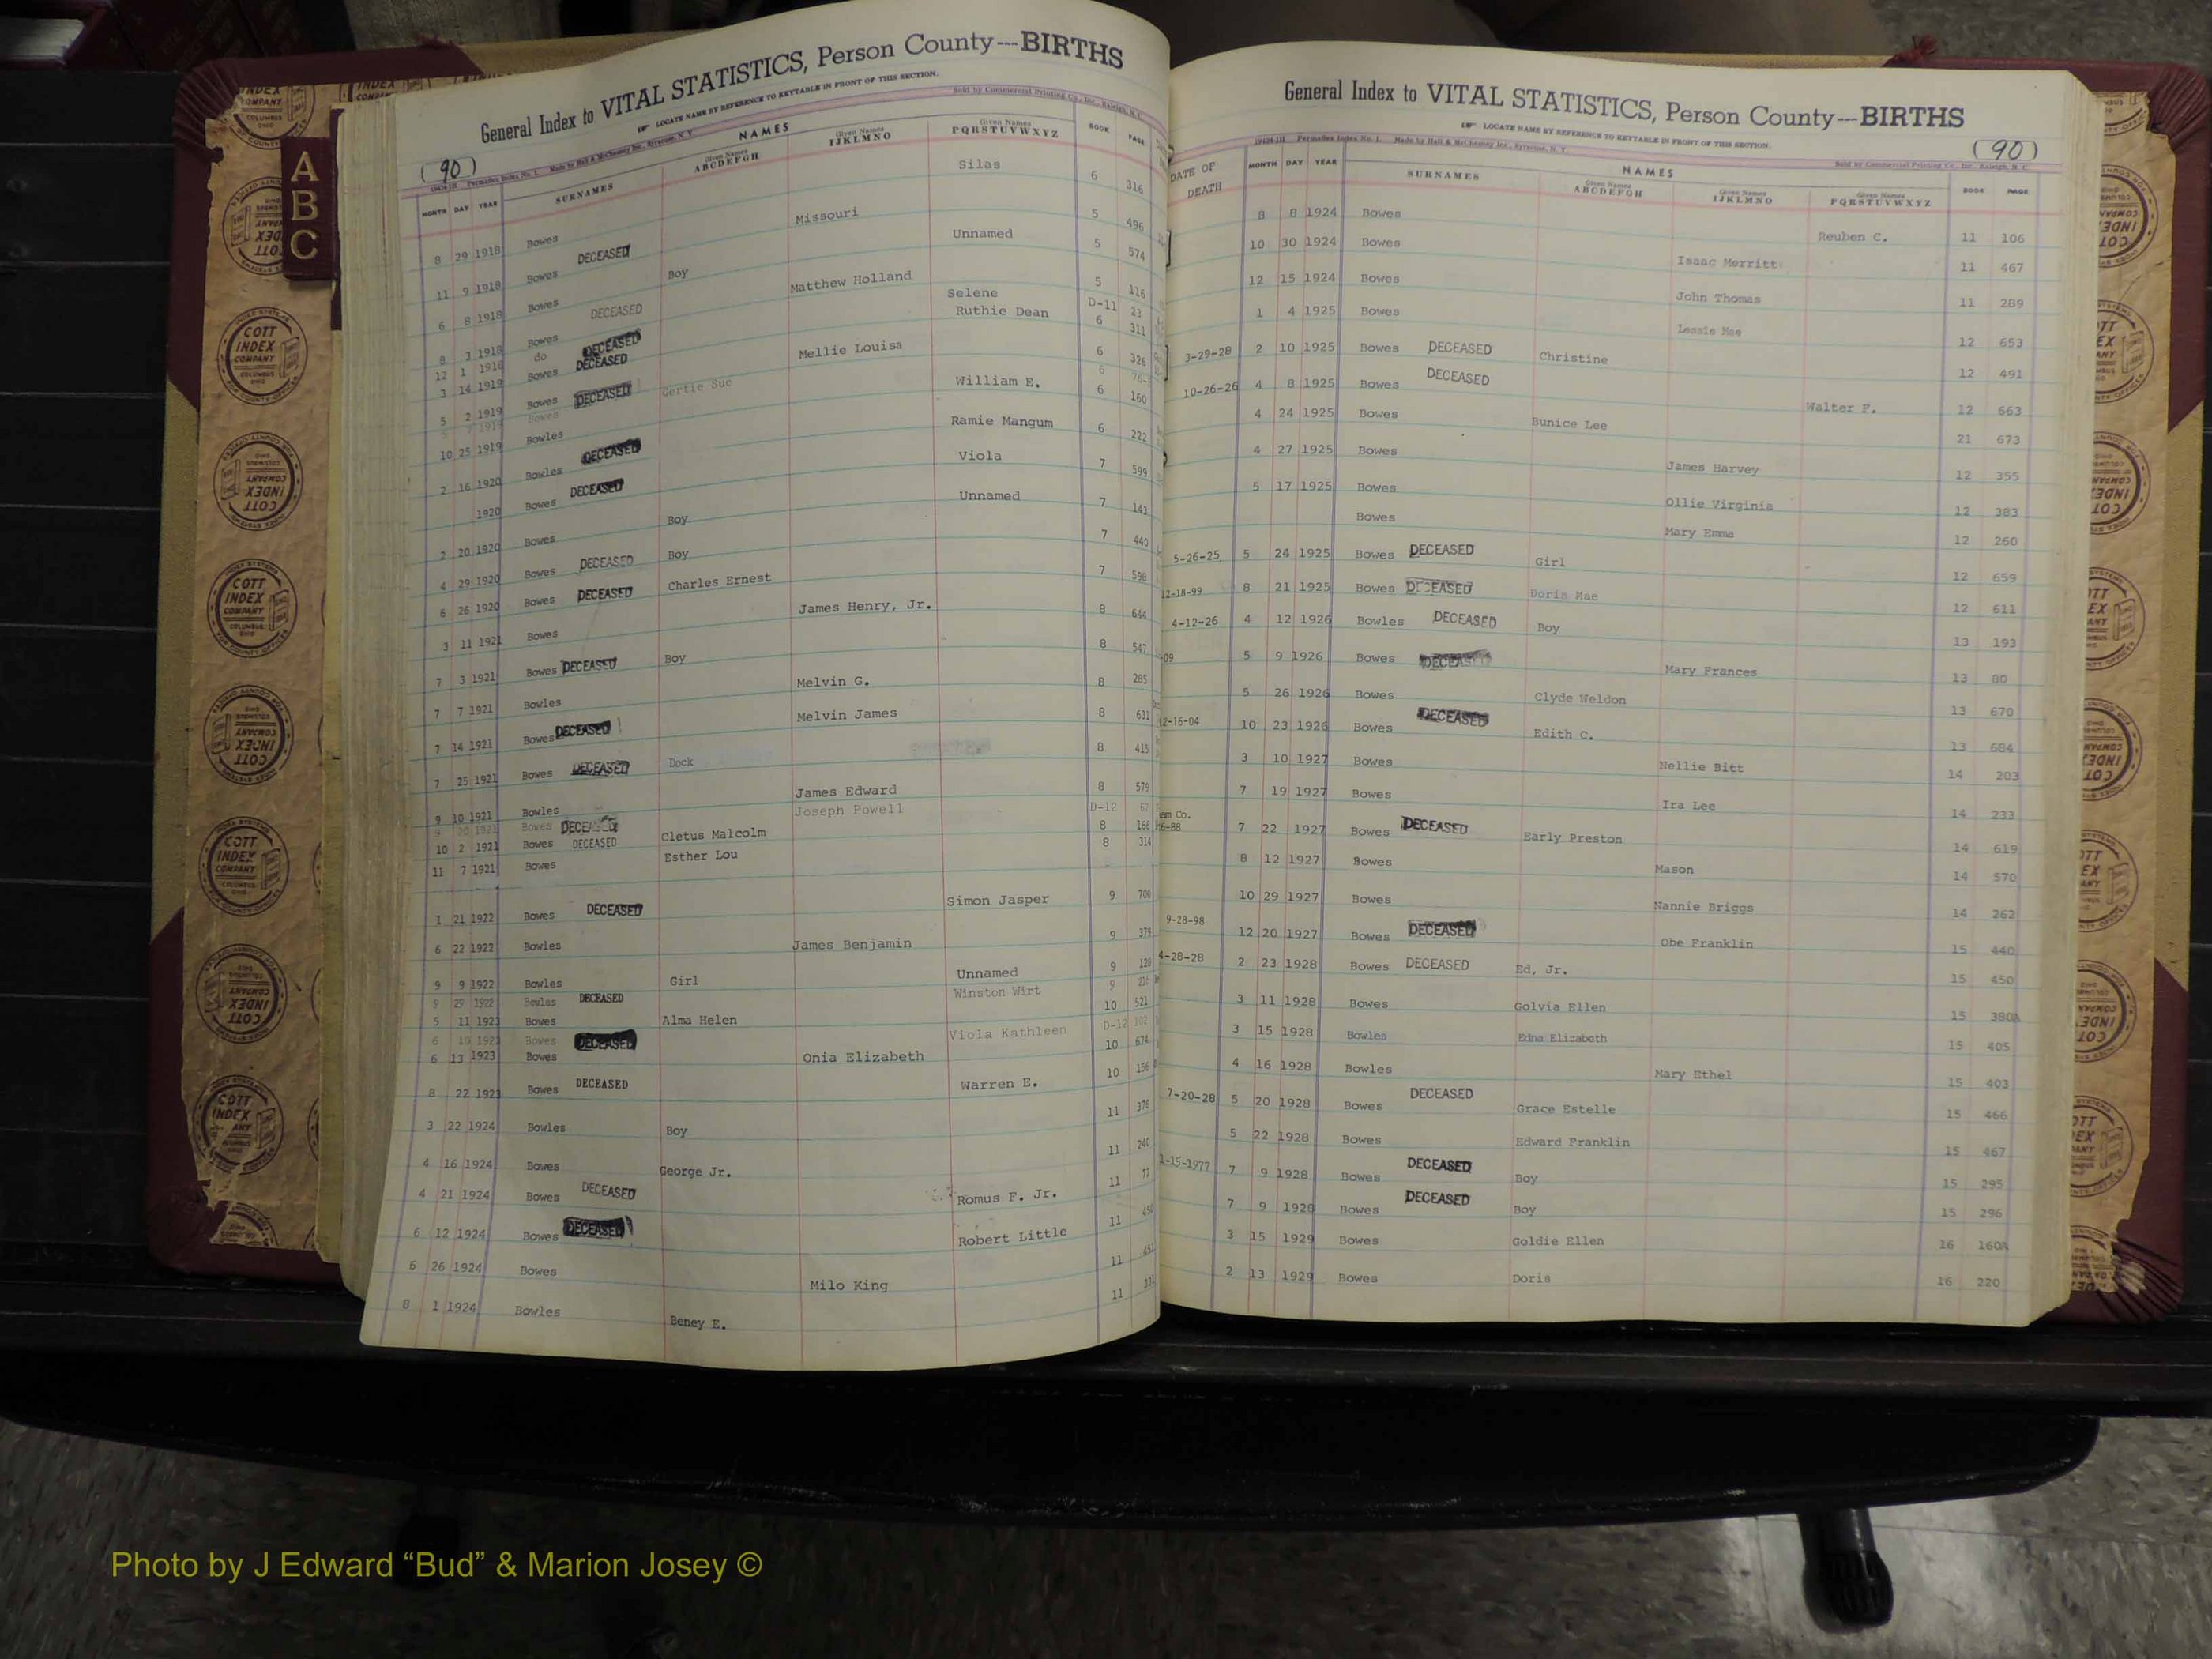 General Index to VITAL STATISTICS, Person County---BIRTHS
LOCATE NAME BY REFERENCE TO KEYTABLE IN FRONT OF THIS SECTION.
Sold by Commercial Printing Co., Inc., Raleigh, N. C.
(90) Made by Hall & McChesney Inc., Syracuse, N. Y.
NAMES
MONTH DAY YEAR SURNAMES Given Names ABCDEFGH Given Names IJKLMNO Given Names PQRSTUVWXYZ BOOK PAGE
8 29 1918 Bowes Silas 6 316
11 9 1918 Bowes DECEASED Missouri 5 496
6 8 1918 Bowes Boy Unnamed 5 574
8 3 1918 Bowes DECEASED Matthew Holland 5 116
12 1 1918 do DECEASED Selene D-11 23
3 14 1919 Bowes DECEASED Ruthie Dean 6 311
5 2 1919 Bowes DECEASED Mellie Louisa 6 326
1919 Bowes Gertie Sue 6
10 25 1919 Bowles William E. 6 160
2 16 1920 Bowles DECEASED Ramie Mangum 6 222
1920 Bowes DECEASED Viola 7 599
2 20 1920 Bowes Boy Unnamed 7 143
4 29 1920 Bowes DECEASED Boy 7 440
6 26 1920 Bowes DECEASED Charles Ernest 7 598
3 11 1921 Bowes James Henry, Jr. 8 644
7 3 1921 Bowes DECEASED Boy 8 547
7 7 1921 Bowles Melvin G. 8 285
7 14 1921 Bowes DECEASED Melvin James 8 631
7 25 1921 Bowes DECEASED Dock 8 415
9 10 1921 Bowles James Edward 8 579
9 20 1921 Bowes DECEASED Joseph Powell D-12
10 2 1921 Bowes DECEASED Cletus Malcolm 8 166
11 7 1921 Bowes Esther Lou 8 314
1 21 1922 Bowes DECEASED Simon Jasper 9 700
6 22 1922 Bowles James Benjamin 9 375
9 9 1922 Bowles Girl Unnamed 9 128
9 29 1922 Bowles DECEASED Winston Wirt 9
5 11 1923 Bowes Alma Helen 10 521
6 10 1923 Bowes DECEASED Viola Kathleen D-12 102
6 13 1923 Bowes Onia Elizabeth 10 674
8 22 1923 Bowes DECEASED Warren E. 10 156
3 22 1924 Bowles Boy 11 378
4 16 1924 Bowes George Jr. 11 240
4 21 1924 Bowes DECEASED Romus F. Jr. 11
6 12 1924 Bowes DECEASED Robert Little 11
6 26 1924 Bowes Milo King 11
8 1 1924 Bowles Beney E. 11
General Index to VITAL STATISTICS, Person County---BIRTHS
LOCATE NAME BY REFERENCE TO KEYTABLE IN FRONT OF THIS SECTION.
Made by Hall & McChesney Inc., Syracuse, N. Y.
Sold by Commercial Printing Co., Inc., Raleigh, N. C.
(90)
NAMES
DATE OF DEATH MONTH DAY YEAR SURNAMES Given Names ABCDEFGH Given Names IJKLMNO Given Names PQRSTUVWXYZ BOOK PAGE
8 8 1924 Bowes Reuben C. 11 106
10 30 1924 Bowes Isaac Merritt 11 467
12 15 1924 Bowes John Thomas 11 289
1 4 1925 Bowes Lessie Mae 12 653
3-29-28 2 10 1925 Bowes DECEASED Christine 12 491
10-26-26 4 8 1925 Bowes DECEASED Walter F. 12 663
4 24 1925 Bowes Bunice Lee 21 673
4 27 1925 Bowes James Harvey 12 355
5 17 1925 Bowes Ollie Virginia 12 383
Bowes Mary Emma 12 260
5-26-25 5 24 1925 Bowes DECEASED Girl 12 659
12-18-99 8 21 1925 Bowes DECEASED Doris Mae 12 611
4-12-26 4 12 1926 Bowles DECEASED Boy 13 193
-09 5 9 1926 Bowes DECEASED Mary Frances 13 80
5 26 1926 Bowes Clyde Weldon 13 670
12-16-04 10 23 1926 Bowes DECEASED Edith C. 13 684
3 10 1927 Bowes Nellie Bitt 14 203
7 19 1927 Bowes Ira Lee 14 233
am Co.
6-88 7 22 1927 Bowes DECEASED Early Preston 14 619
8 12 1927 Bowes Mason 14 570
10 29 1927 Bowes Nannie Briggs 14 262
9-28-98 12 20 1927 Bowes DECEASED Obe Franklin 15 440
4-28-28 2 23 1928 Bowes DECEASED Ed, Jr. 15 450
3 11 1928 Bowes Golvia Ellen 15 380A
3 15 1928 Bowles Edna Elizabeth 15 405
4 16 1928 Bowles Mary Ethel 15 403
7-20-28 5 20 1928 Bowes DECEASED Grace Estelle 15 466
5 22 1928 Bowes Edward Franklin 15 467
1-15-1977 7 9 1928 Bowes DECEASED Boy 15 295
7 9 1928 Bowes DECEASED Boy 15 296
3 15 1929 Bowes Goldie Ellen 16 160A
2 13 1929 Bowes Doris 16 220
A
B
C
COTT INDEX COMPANY COLUMBUS OHIO
Photo by J Edward “Bud” & Marion Josey ©